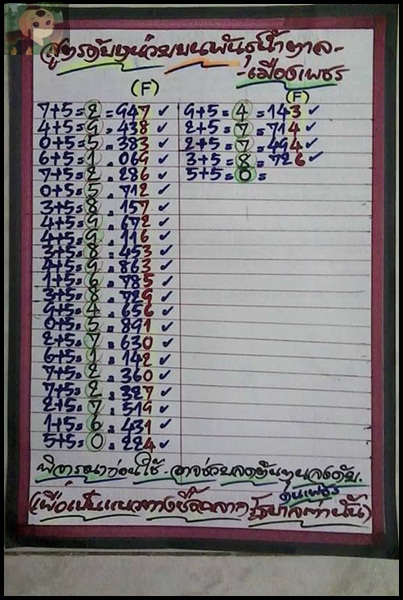 สูตรดับหน่วยบนพันธุ์น้ำตาล-
-เมืองเพชร
(F)
7+5=2=947✓
4+5=9=438✓
0+5=5=383✓
6+5=1=069✓
7+5=2=286✓
0+5=5=712✓
3+5=8=157✓
4+5=9=672✓
4+5=9=116✓
3+5=8=453✓
4+5=9=863✓
1+5=6=785✓
3+5=8=729✓
9+5=4=656✓
0+5=5=891✓
2+5=7=630✓
6+5=1=142✓
7+5=2=360✓
7+5=2=327✓
2+5=7=519✓
1+5=6=431✓
5+5=0=224✓
(F)
9+5=4=143✓
2+5=7=714✓
2+5=7=494✓
3+5=8=726✓
5+5=0=
พิจารณาก่อนใช้ อาจช่วยลดต้นทุนลงได้.
คนเพชร
(เพื่อเป็นแนวทางซื้อสลากรัฐบาลเท่านั้น)